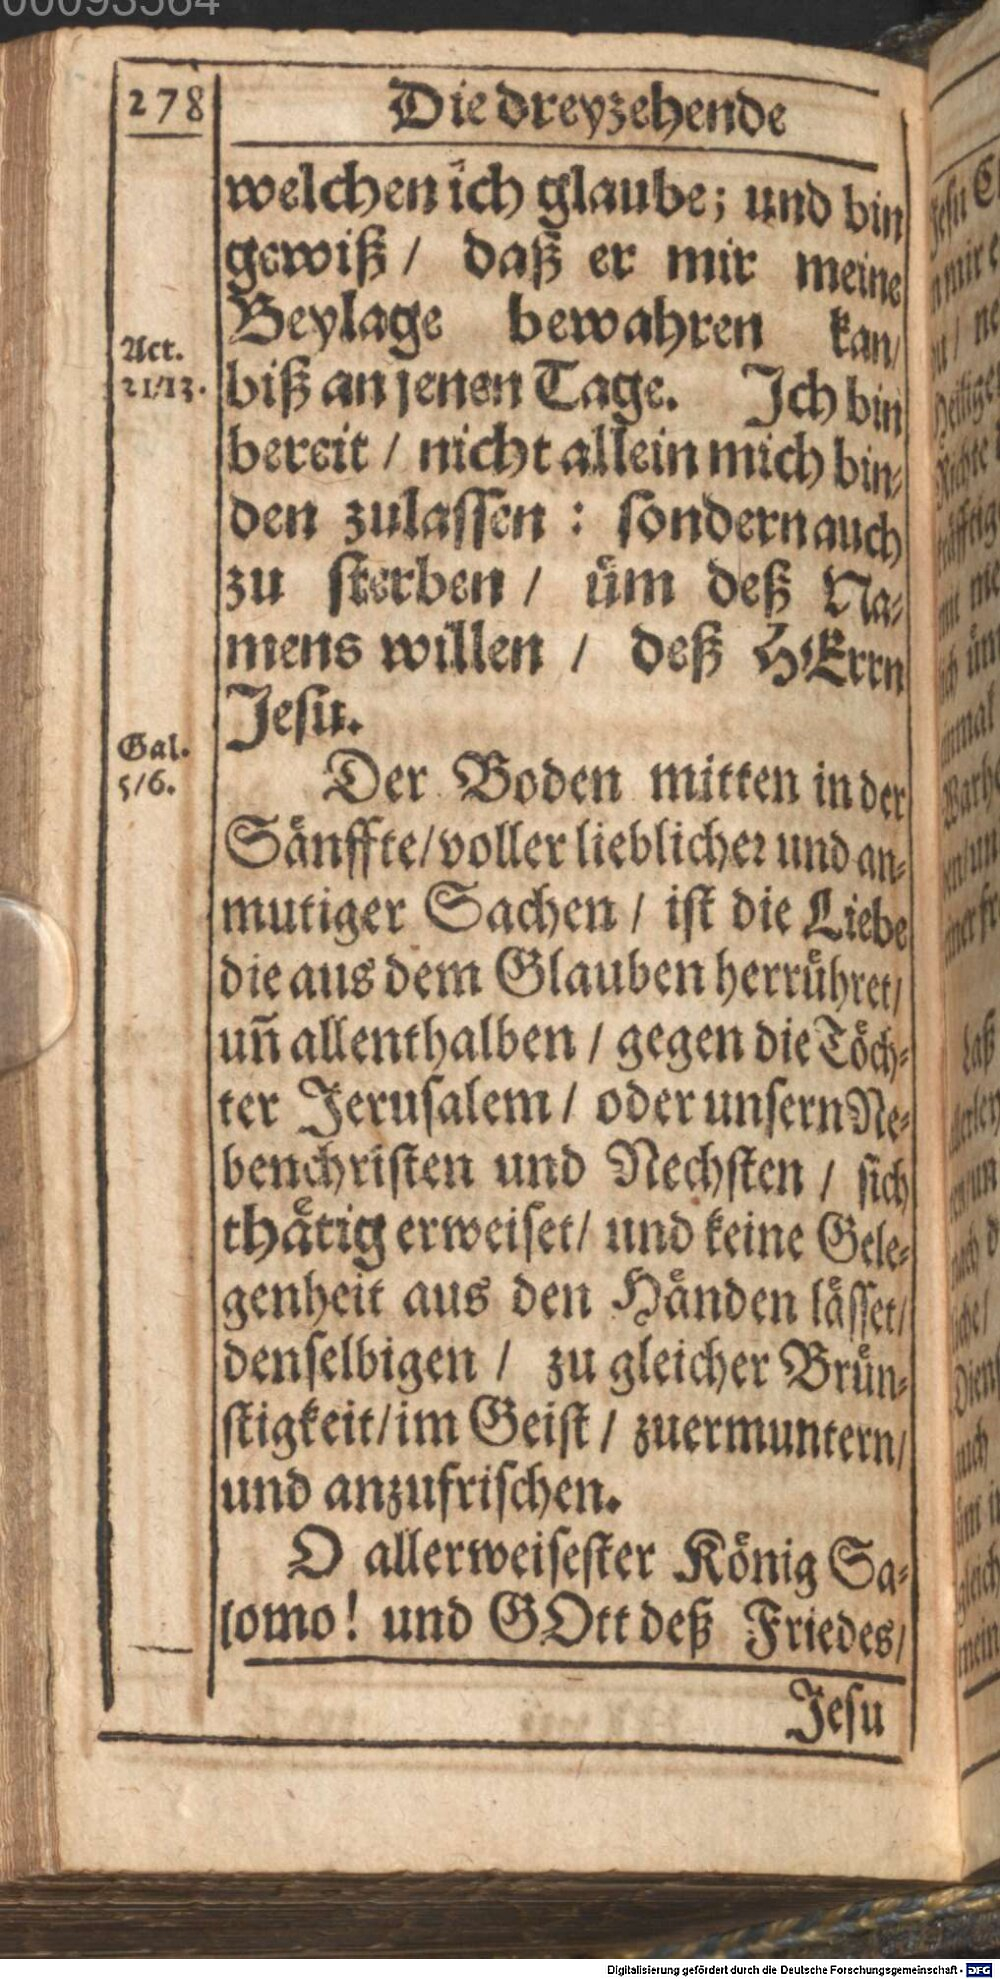 278
Die dreyzehende
welchen ich glaube; und bin
gewiß / daß er mir meine
Beylage bewahren kan/
Act.
21/13.
biß an jenen Tage. Ich bin
bereit / nicht allein mich bin-
den zulassen : sondern auch
zu sterben / üm deß Na-
mens willen / deß HErrn
Jesu.
Gal.
5/6.
Der Boden mitten in der
Sänffte/ voller lieblicher und an-
mutiger Sachen / ist die Liebe
die aus dem Glauben herrühret/
uñ allenthalben / gegen die Töch-
ter Jerusalem / oder unsern Ne-
benchristen und Nechsten / sich
thätig erweiset/ und keine Gele-
genheit aus den Händen lässet/
denselbigen / zu gleicher Brün-
stigkeit/ im Geist / zuermuntern/
und anzufrischen.
O allerweisester König Sa-
lomo! und GOtt deß Friedes/
Jesu
Digitalisierung gefördert durch die Deutsche Forschungsgemeinschaft - DFG